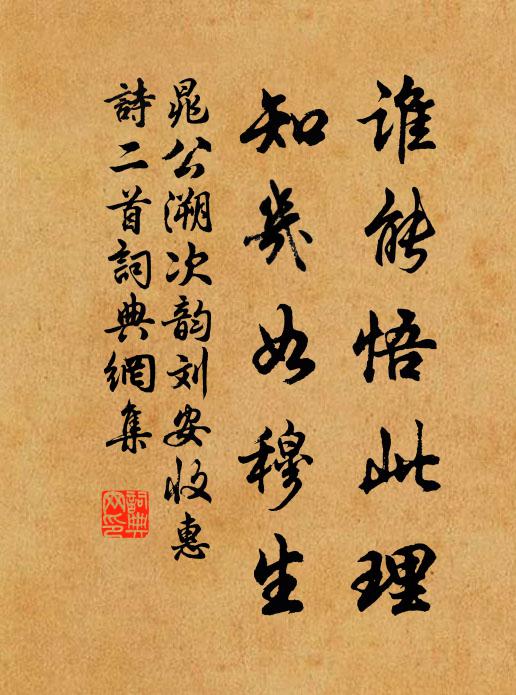 誰能悟此理
知幾如穆生
晁公溯次韵刘安收惠
詩二首詞典網集
詞典網印